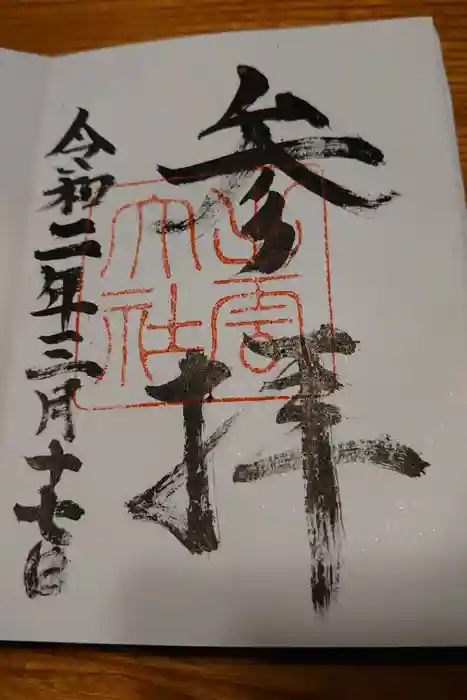 参拝
出雲
大社
令和二年三月十七日